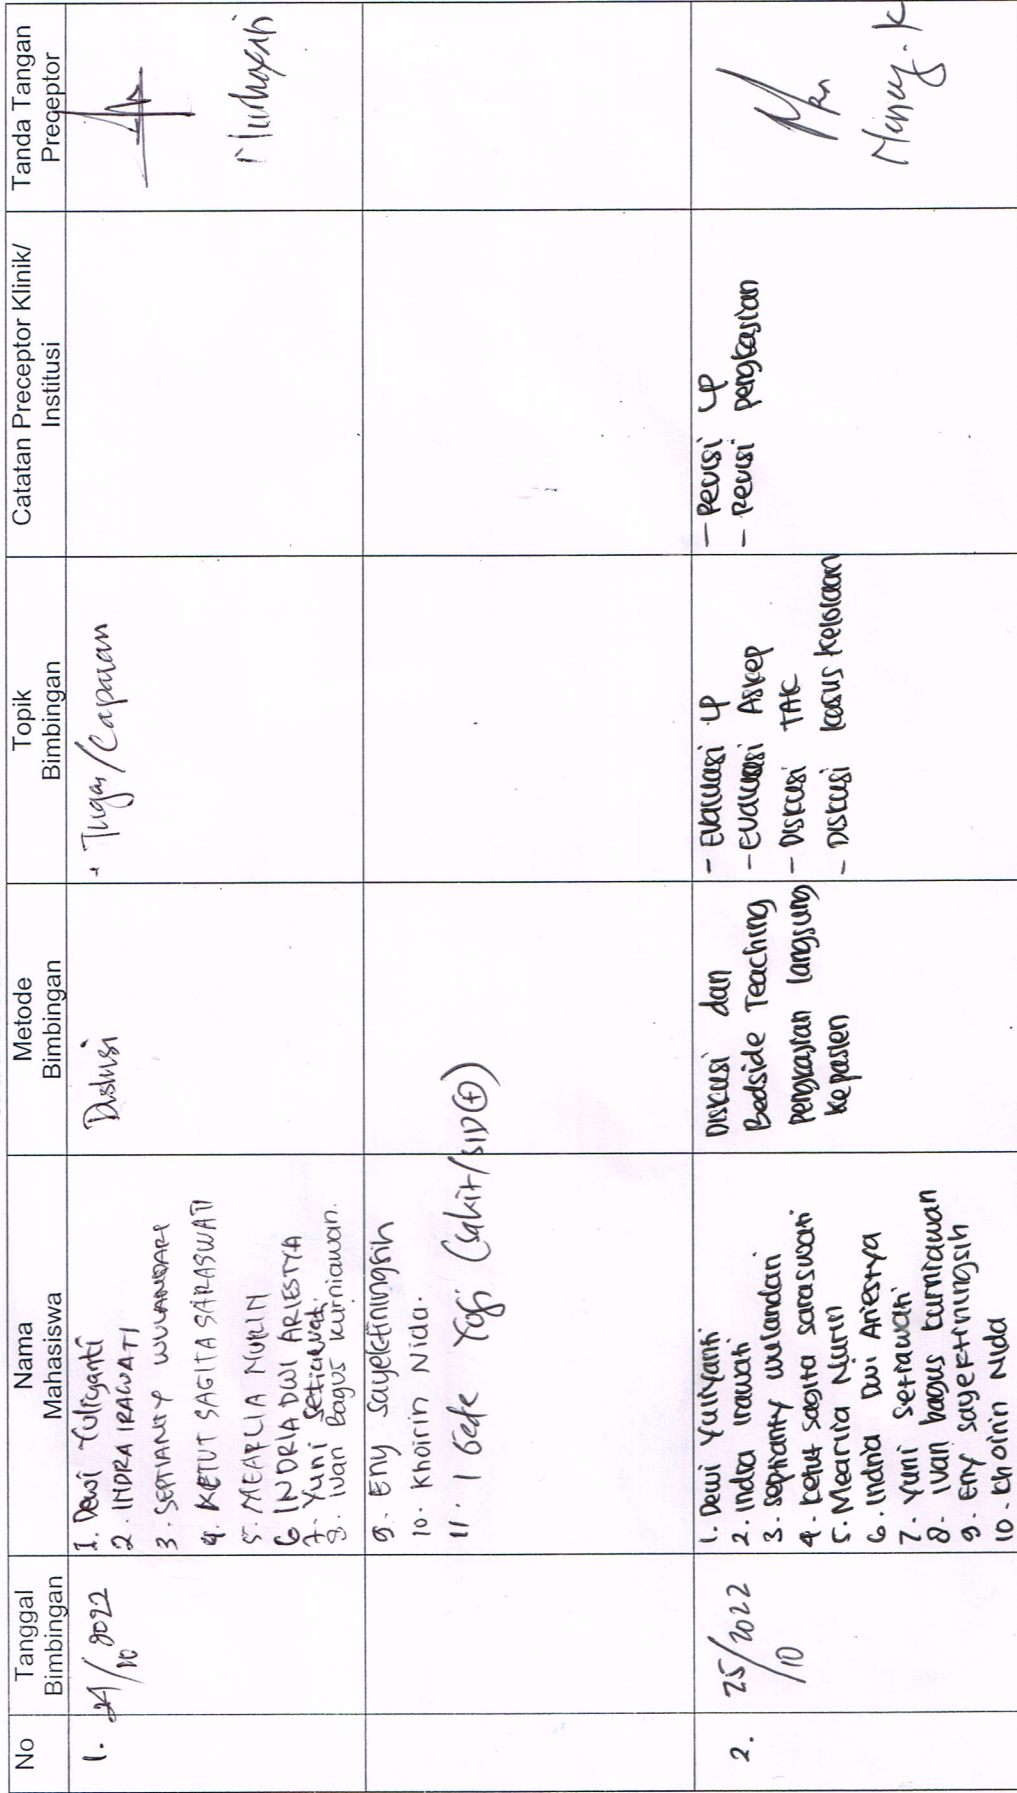 No
Tanggal
Bimbingan
Nama
Mahasiswa
Metode
Bimbingan
Topik
Bimbingan
Catatan Preceptor Klinik/
Institusi
Tanda Tangan
Preceptor
1.
24/10 2022
1. Dewi Yuliyanti
2. INDRA IRAWATI
3. SEPTIANTY WULANDARI
4. KETUT SAGITA SARASWATI
5. MEARLIA NURIN
6 INDRIA DWI ARIESTYA
7. Yuni Setiawati.
8. Ivan Bagus Kurniawan.
Diskusi
- Tugas/Capaian
9. Eny Sayektiningsih
10. Khoirin Nida.
11. I Gede Yogi (Sakit/SID(+))
2.
25/2022
/10
1. Dewi Yuliyanti
2. Indra Irawati
3. Septianty wulandari
4. Ketut sagita saraswati
5. Mearlia Nurin
6. Indria Dwi Ariestya
7. Yuni Setiawati
8. Ivan bagus kurniawan
9. Eny sayektiningsih
10. Khoirin Nida
Diskusi dan
Bedside Teaching
pengkajian langsung
ke pasien
- Evaluasi LP
- Evaluasi Askep
- Diskusi TAK
- Diskusi kasus kelolaan
- Revisi LP
- Revisi pengkajian